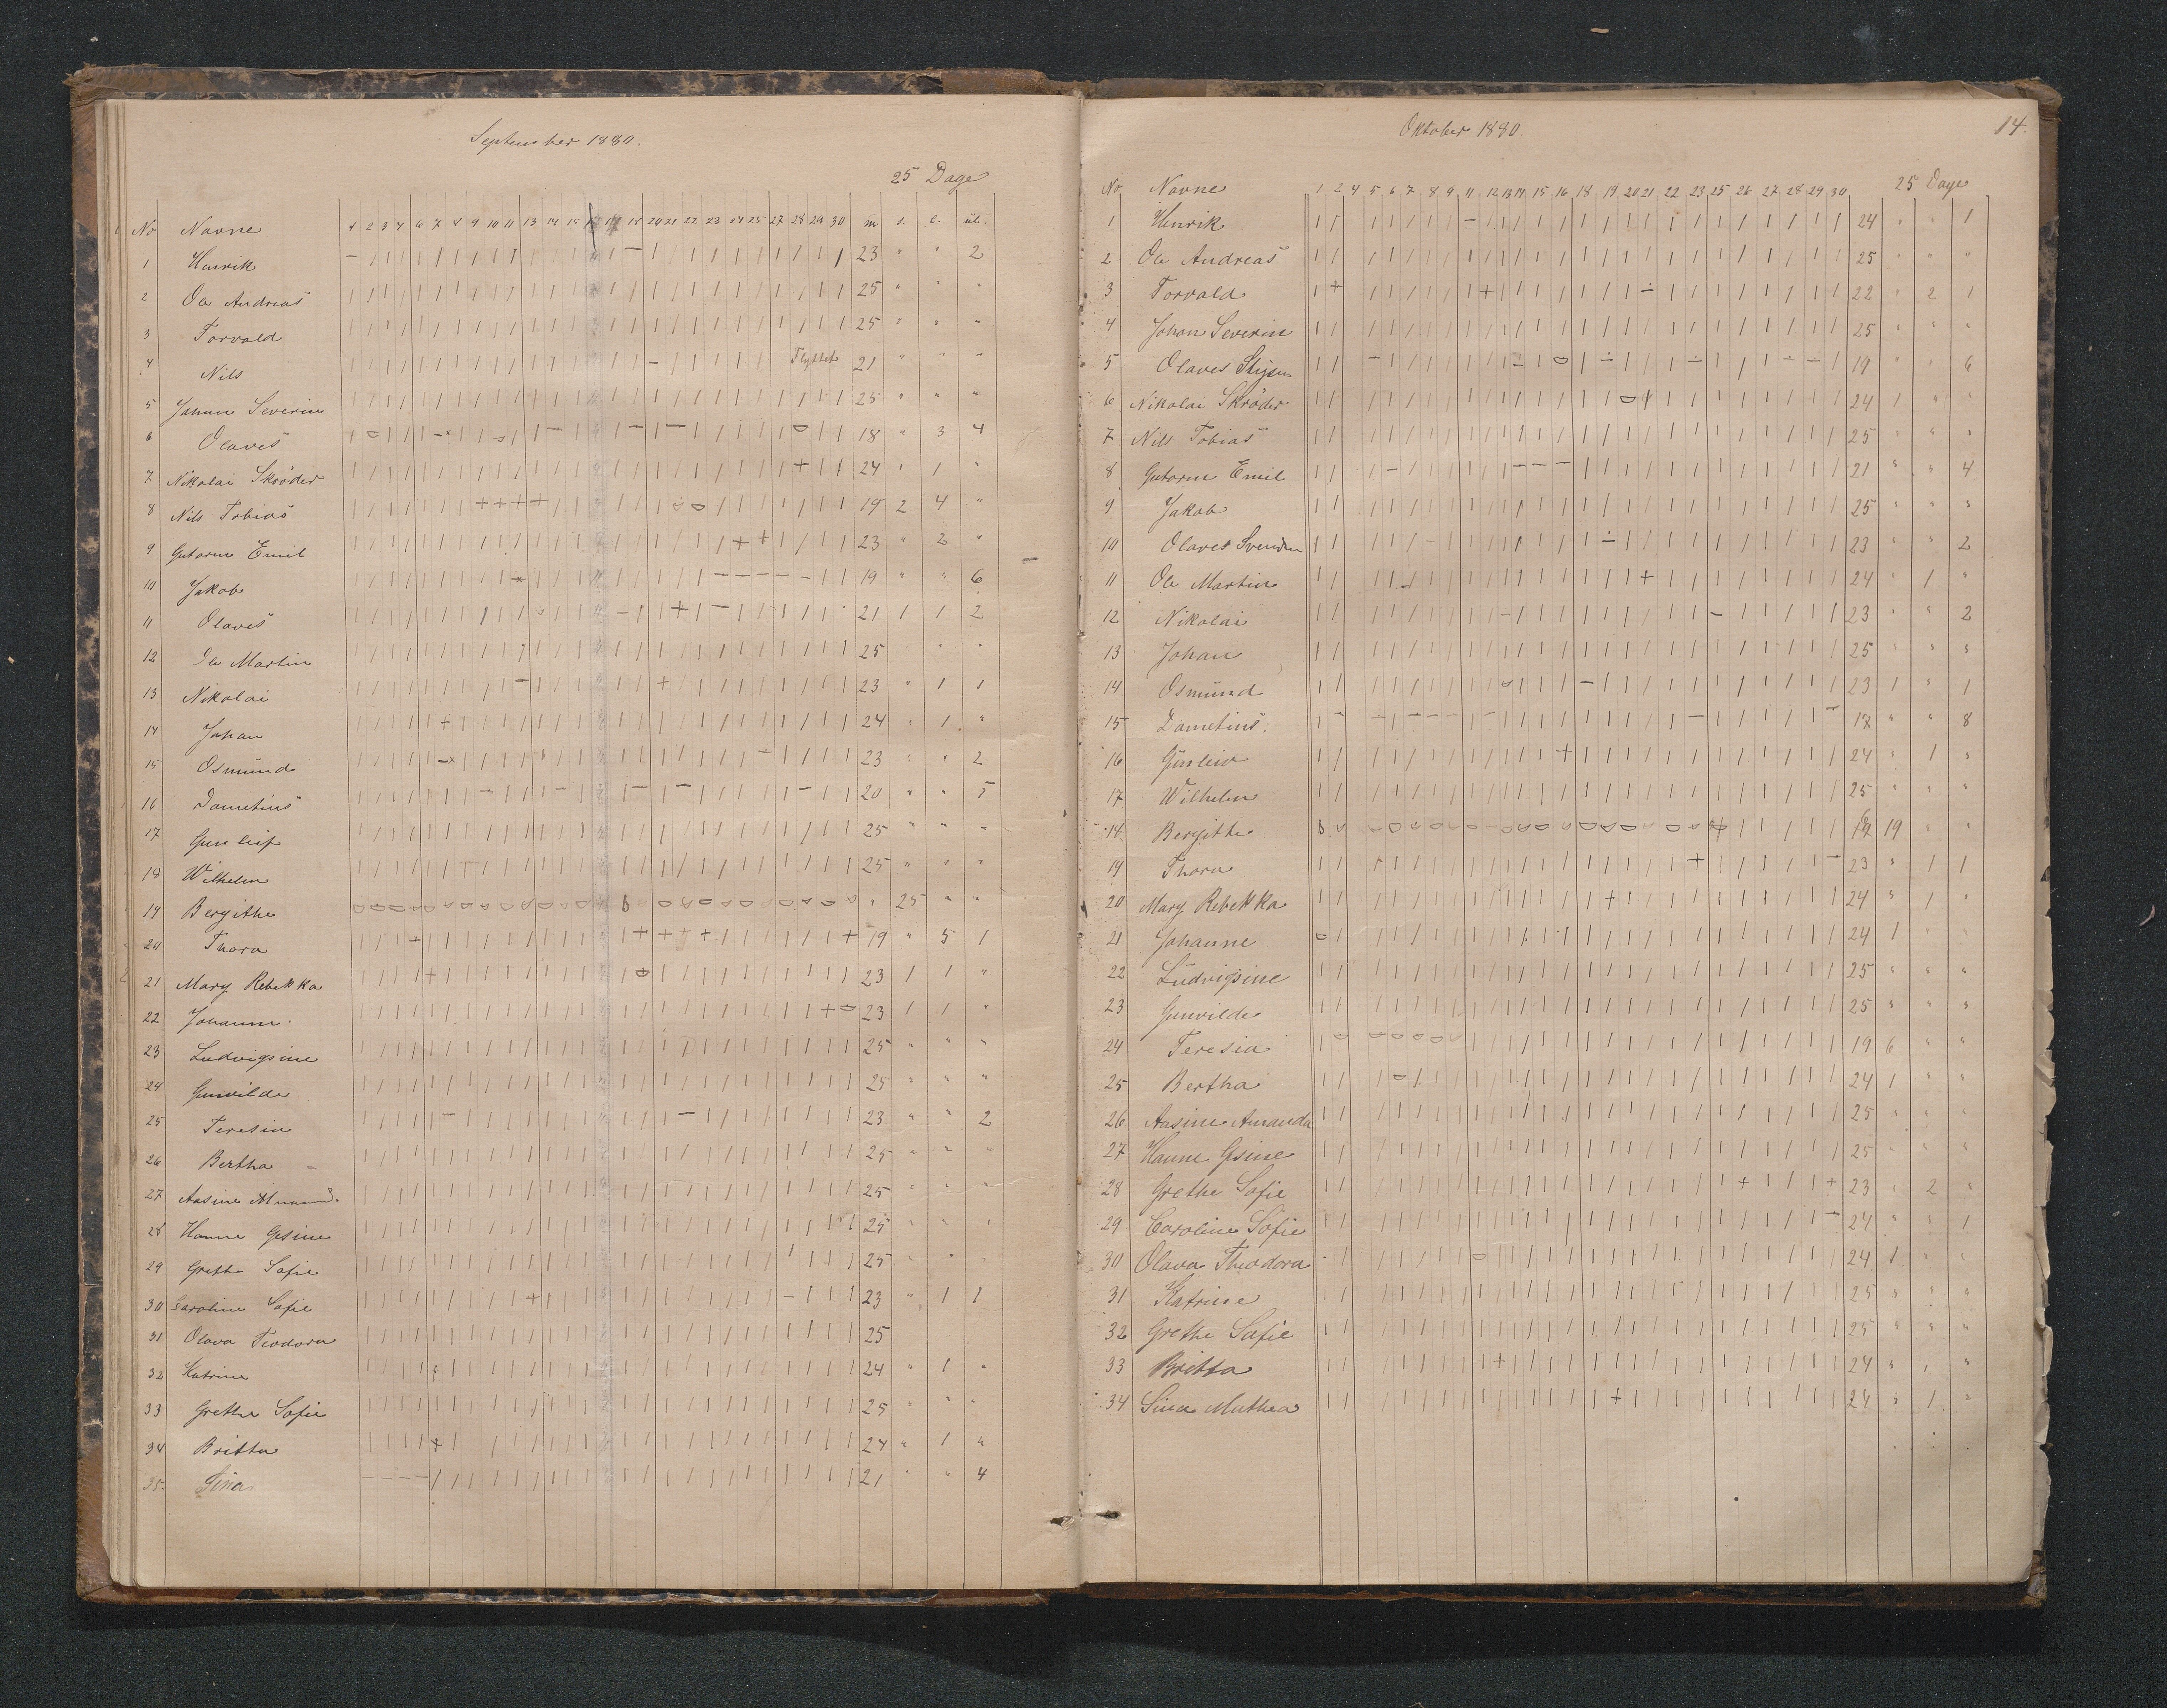 September 1880.
25 Dage
No Navne 1 2 3 4 6 7 8 9 10 11 13 14 15 18 20 21 22 23 24 25 27 28 29 30 m s. l. ul.
1 Henrik 23 " " 2
2 Ole Andreas 25 " " "
3 Torvald 25 " " "
4 Nils Flyttet 21 " " "
5 Johan Severin 25 " " "
6 Olaves 18 " 3 4
7 Nikolai Skröder 24 " 1 "
8 Nils Tobias 19 2 4 "
9 Gutorm Emil 23 " 2 "
10 Jakob 19 " " 6
11 Olaves 21 1 1 2
12 Ole Martin 25 " "
13 Nikolai 23 " 1 1
14 Johan 24 " 1 "
15 Osmund 23 " " 2
16 Dometius 20 " " 5
17 Gunleif 25 " " "
18 Wilhelm 25 " " "
19 Bergithe " 25 " "
20 Thora 19 " 5 1
21 Mary Rebekka 23 1 1 "
22 Johanne 23 1 1 "
23 Ludvigsine 25 " " "
24 Gunvilde 25 " " "
25 Teresia 23 " " 2
26 Bertha 25 " "
27 Aasine Amand. 25 " " "
28 Hanne Gesine 25 " " "
29 Grethe Sofie 25 " "
30 Caroline Sofie 23 " 1 1
31 Olava Teodora 25
32 Katrine 24 " 1 "
33 Grethe Sofie 25 " " "
34 Britta 24 " 1 "
35. Sina 21 " " 4
Oktober 1880.
14.
No Navne 1 2 4 5 6 7 8 9 11 12 13 14 15 16 18 19 20 21 22 23 25 26 27 28 29 30 25 Dage
1 Henrik 24 " " 1
2 Ole Andreas 25 " " "
3 Torvald 22 " 2 1
4 Johan Severin 25 " " "
5 Olaves 19 " " 6
6 Nikolai Skröder 24 1 " "
7 Nils Tobias 25 " " "
8 Gutorm Emil 21 " " 4
9 Jakob 25 " " "
10 Olaves Svendsen 23 " " 2
11 Ole Martin 24 " 1 "
12 Nikolai 23 " " 2
13 Johan 25 " " "
14 Osmund 23 1 " 1
15 Dometius. 17 " " 8
16 Gunleiv 24 " 1 "
17 Wilhelm 25 " " "
18. Bergitte 19 " "
19 Thora 23 " 1 1
20 Mary Rebekka 24 " 1 "
21 Johanne 24 1 " "
22 Ludvigsine 25 " " "
23 Gunvilde 25 " " "
24 Teresia 19 6 " "
25 Bertha 24 1 " "
26 Aasine Amanda 25 " " "
27 Hanne Gesine 25 " " "
28 Grethe Sofie 23 " 2 "
29 Caroline Sofie 24 " " 1
30 Olava Theodora 24 1 " "
31 Katrine 25 " " "
32 Grethe Sofie 25 " " "
33 Britta 24 " 1 "
34 Sina Mathea 24 " 1 "